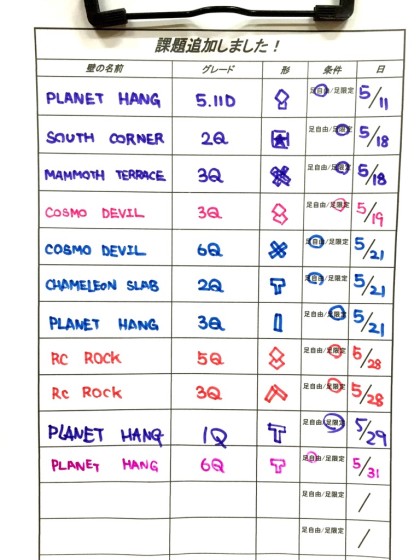 課題追加しました!
壁の名前 グレード 形 条件 日
PLANET HANG 5.11D 足自由/足限定 5/11
SOUTH CORNER 2Q 足自由/足限定 5/18
MAMMOTH TERRACE 3Q 足自由/足限定 5/18
COSMO DEVIL 3Q 足自由/足限定 5/19
COSMO DEVIL 6Q 足自由/足限定 5/21
CHAMELEON SLAB 2Q 足自由/足限定 5/21
PLANET HANG 3Q 足自由/足限定 5/21
RC ROCK 5Q 足自由/足限定 5/28
RC ROCK 3Q 足自由/足限定 5/28
PLANET HANG 1Q 足自由/足限定 5/29
PLANET HANG 6Q 足自由/足限定 5/31
足自由/足限定 /
足自由/足限定 /